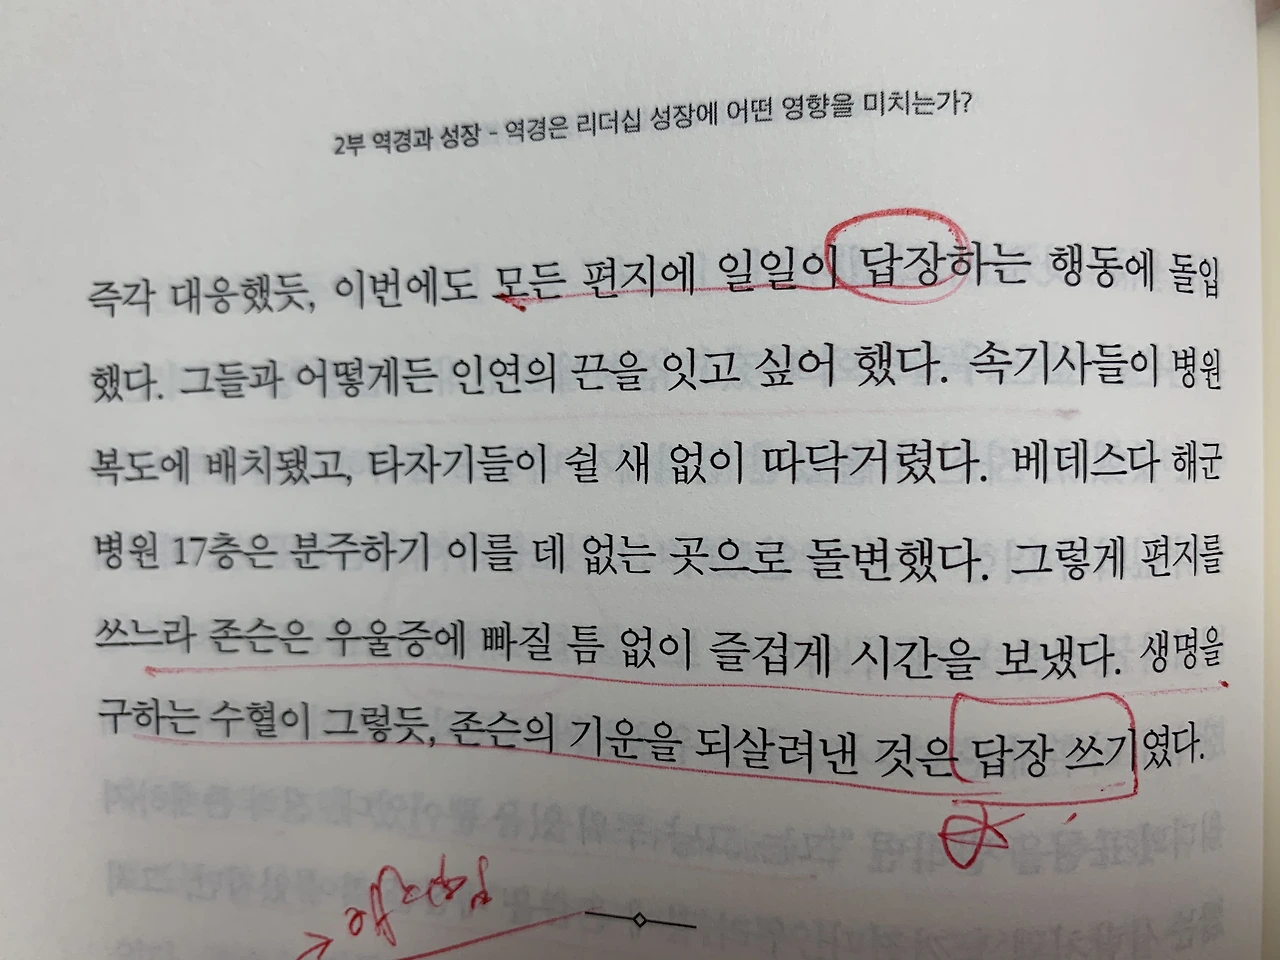 2부 역경과 성장 - 역경은 리더십 성장에 어떤 영향을 미치는가?
즉각 대응했듯, 이번에도 모든 편지에 일일이 답장하는 행동에 돌입
했다. 그들과 어떻게든 인연의 끈을 잇고 싶어 했다. 속기사들이 병원
복도에 배치됐고, 타자기들이 쉴 새 없이 따닥거렸다. 베데스다 해군
병원 17층은 분주하기 이를 데 없는 곳으로 돌변했다. 그렇게 편지를
쓰느라 존슨은 우울증에 빠질 틈 없이 즐겁게 시간을 보냈다. 생명을
구하는 수혈이 그렇듯, 존슨의 기운을 되살려낸 것은 답장 쓰기였다.